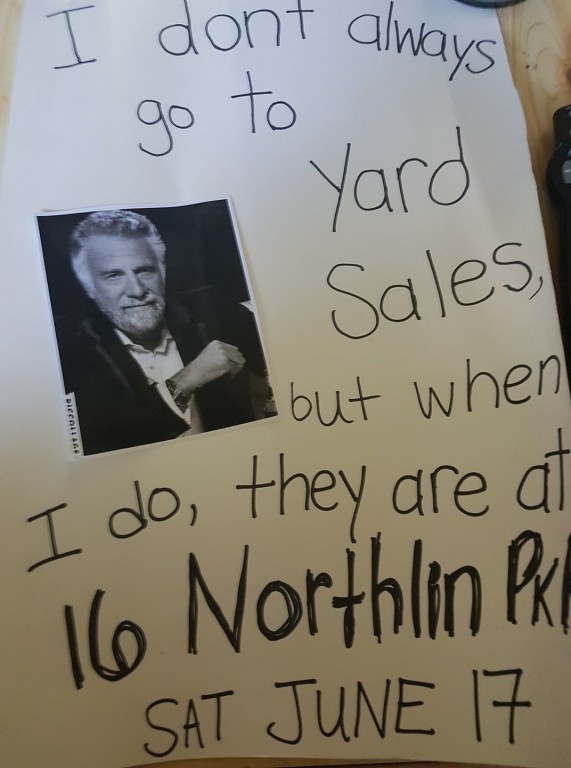 I dont always
go to
Yard
Sales,
but when
I do, they are at
16 Northlin Pk
SAT JUNE 17
PICCOLLAGE